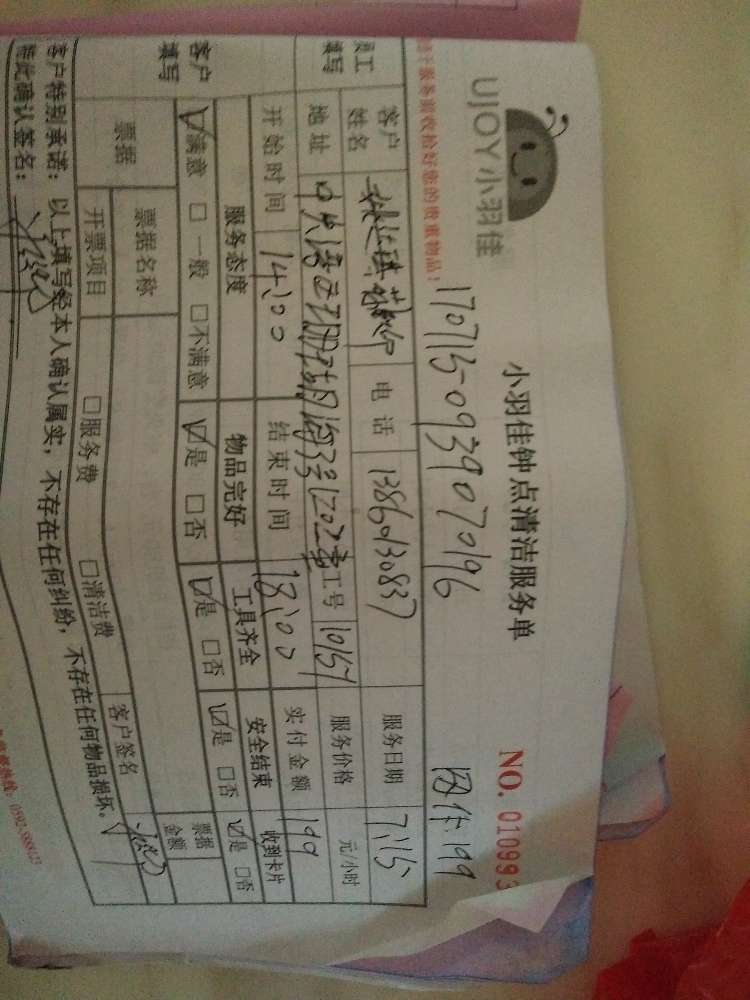 UJOY小羽佳
小羽佳钟点清洁服务单
NO. 010993
170715-0939070196
团件:199
请于服务前收拾好您的贵重物品!
员工填写
客户姓名
电话 13860130837
服务日期 7.15
地址 中央海区珊瑚海33#1202
工号 10157
服务价格 元/小时
开始时间 14:00
结束时间 18:00
实付金额 199
客户填写
服务态度
物品完好
工具齐全
安全结束
收到卡片
☑满意 □一般 □不满意
☑是 □否
☑是 □否
☑是 □否
☑是 □否
票据
票据名称
票据金额
开票项目
□服务费
□清洁费
客户签名
客户特别承诺:以上填写经本人确认属实,不存在任何纠纷,不存在任何物品损坏。
特此确认签名:
热线:0592-5888123